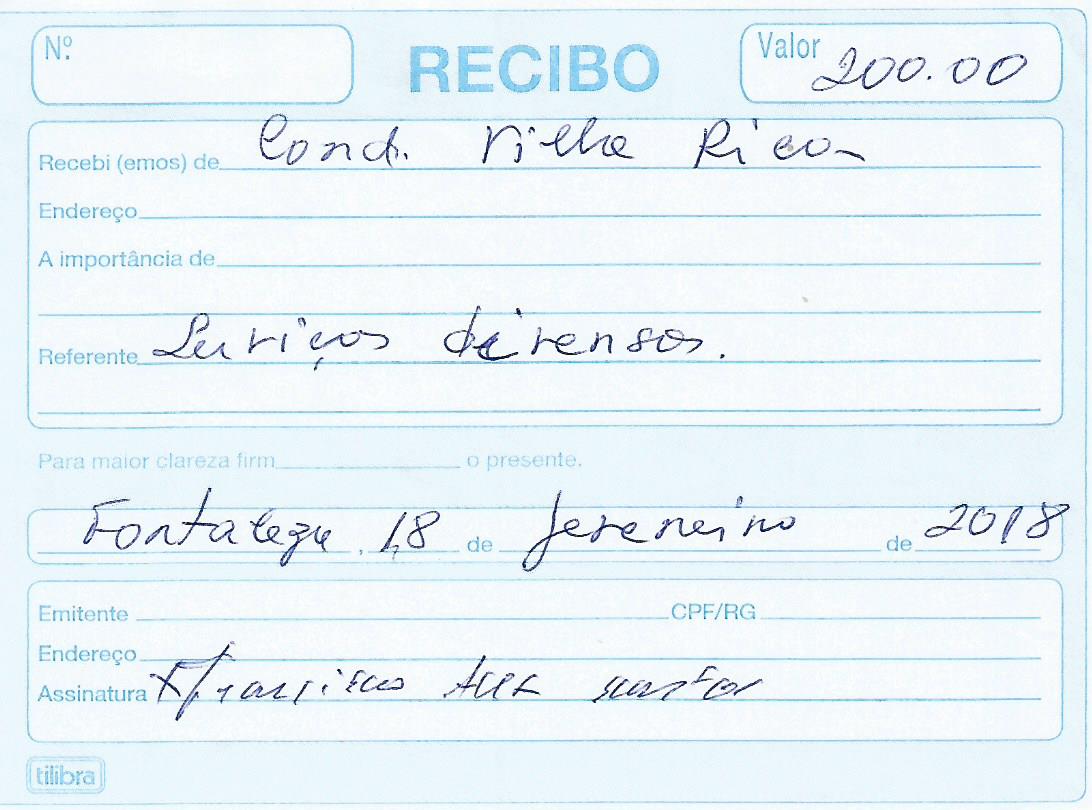 Nº RECIBO Valor 200.00
Recebi (emos) de Cond. Villa Rica
Endereço
A importância de
Referente Serviços diversos.
Para maior clareza firm o presente.
Fortaleza, 18 de fevereiro de 2018
Emitente CPF/RG
Endereço
Assinatura Francisco
tilibra